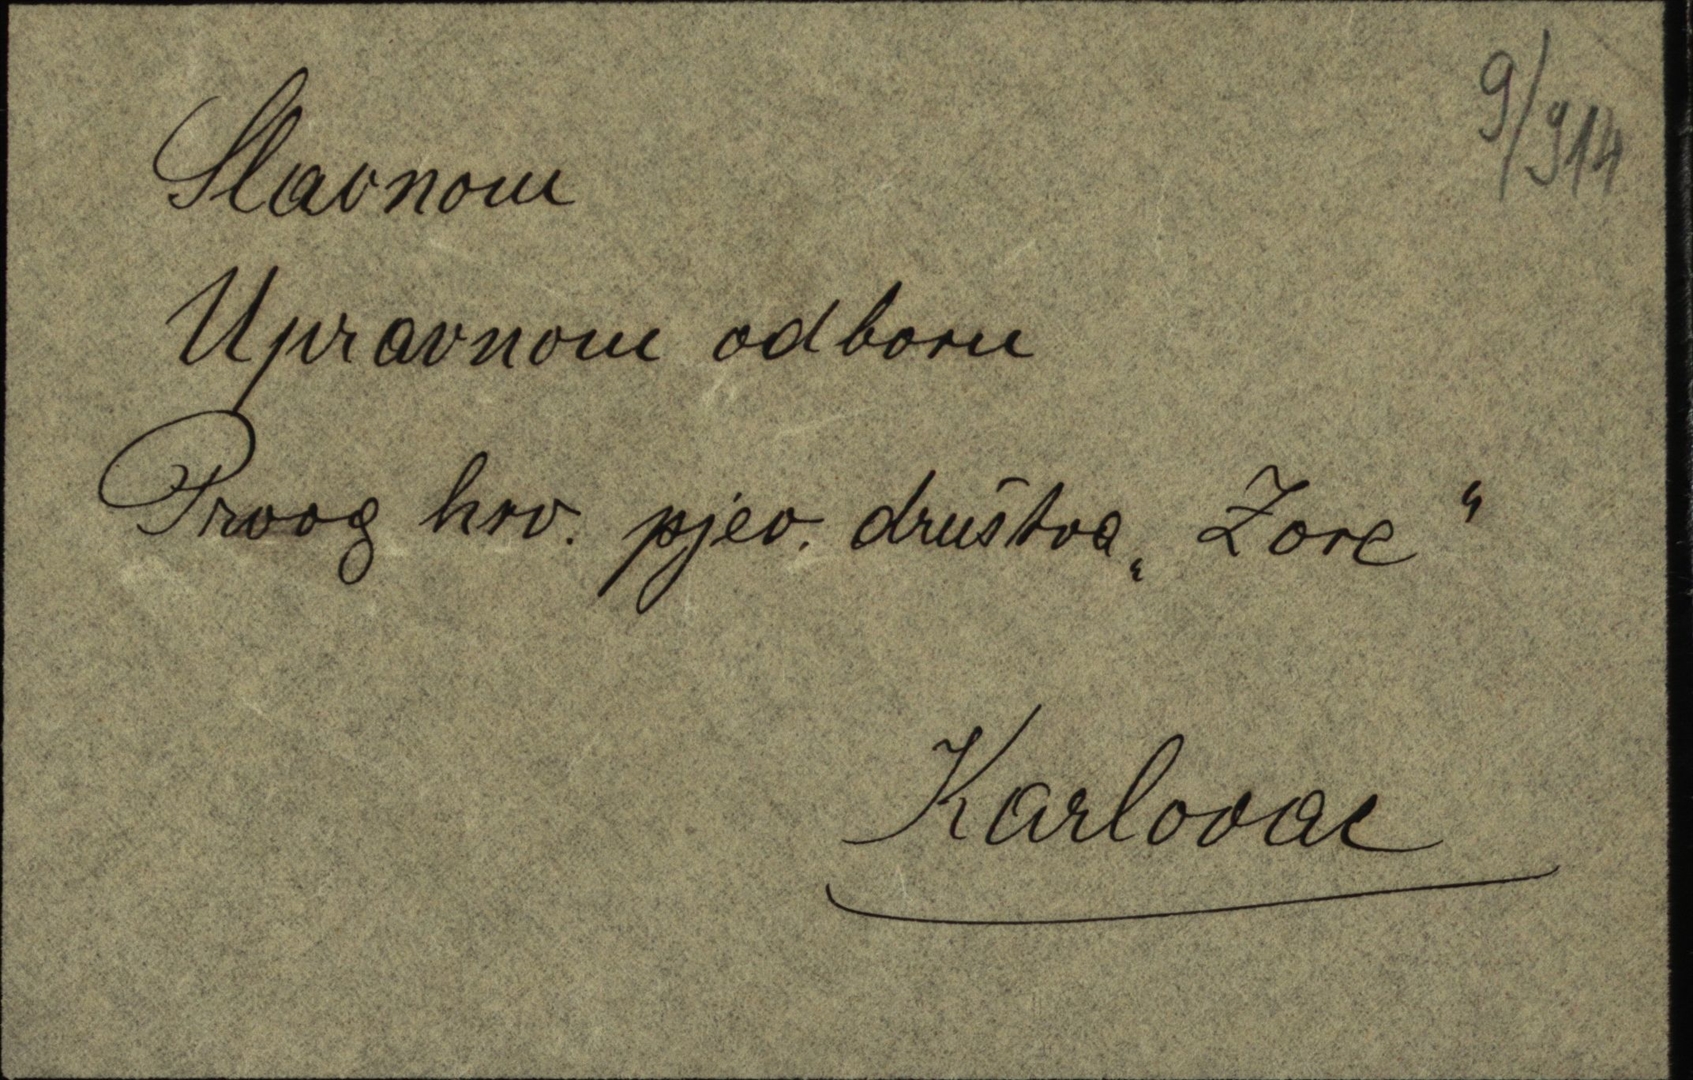 9/914
Slavnom
Upravnom odboru
Prvog hrv. pjev. društva „Zore“
Karlovac